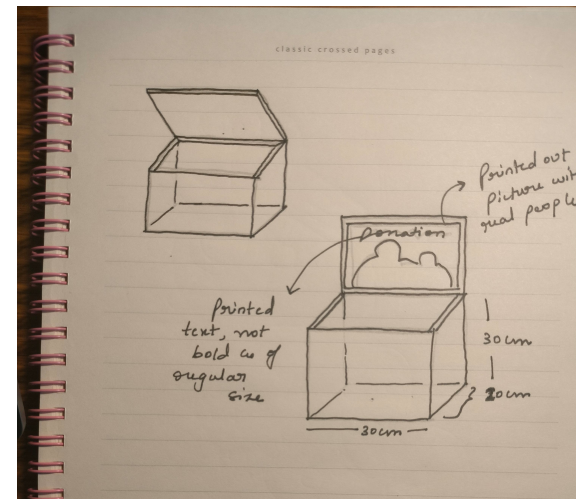 classic crossed pages
Printed out
Picture with
real people
Donation
Printed
text, not
bold or of
regular
size
30cm
20cm
30cm